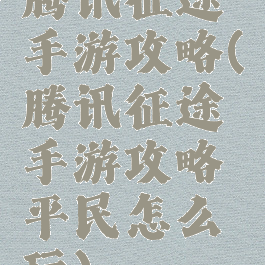 腾讯征途
手游攻略(
腾讯征途
手游攻略
平民怎么
玩)